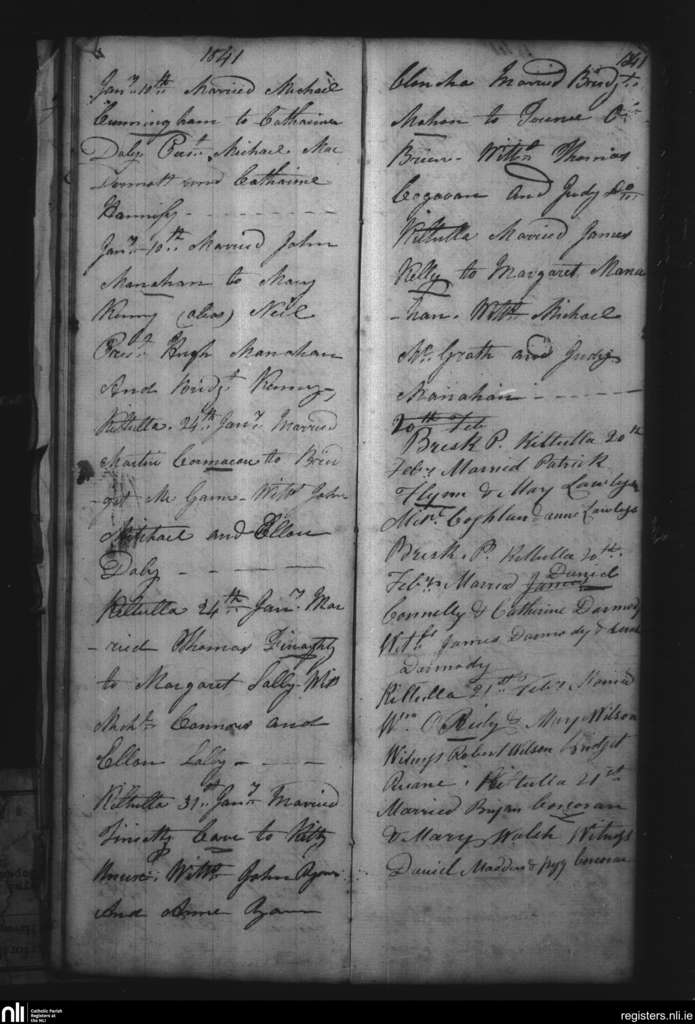 1841
Jany. 10th. Married Michael
Cunningham to Catharine
Daly Prest. Michael Mac
Dermott and Catharine
Hannify
Jany. 10th. Married John
Manahan to Mary
Kenny (alias) Neil
Prest. Hugh Manahan
And Bridgt. Kenny
Kiltulla. 24th. Jany. Married
Martin Cormacan to Brid
-get Mc Gann - Witts. John
Mitchael and Ellen
Daly
Kiltulla 24th. Jany. Mar
-ried Thomas Finaghty
to Margaret Lally. Wits
Michl. Connors and
Ellen Lally
Kiltulla 31st. Jany. Married
Cave to Kitty
Witts. John Ryan
And Anne Ryan
1841
Married Bridgt.
Mahon to O
Brien. Witts. Thomas
Cogavan and Judy Do.
Kiltulla Married James
Kelly to Margaret Mana
-han. Witts. Michael
Mc. Grath and Judy
Manahan
20th Feb
Presk P. Kiltulla 20th
Feby. Married Patrick
Flynn & Mary Lawless
Coghlan & anne Lawless
Presk. P. Kiltulla 20th.
Feby. Married James Daniel
Connelly & Catherine Darmody
Wits James Darmody &
Darmody
Kiltulla 21st Feby Married
Wm O Riely & Mary Wilson
Witness Robert Wilson bridget
Ruane. Kiltulla 21st
Married Bryan Corcoran
& Mary Walsh Witness
Daniel Madden & Pegy Corcoran
nli
Catholic Parish
Registers at
the NLI
registers.nli.ie